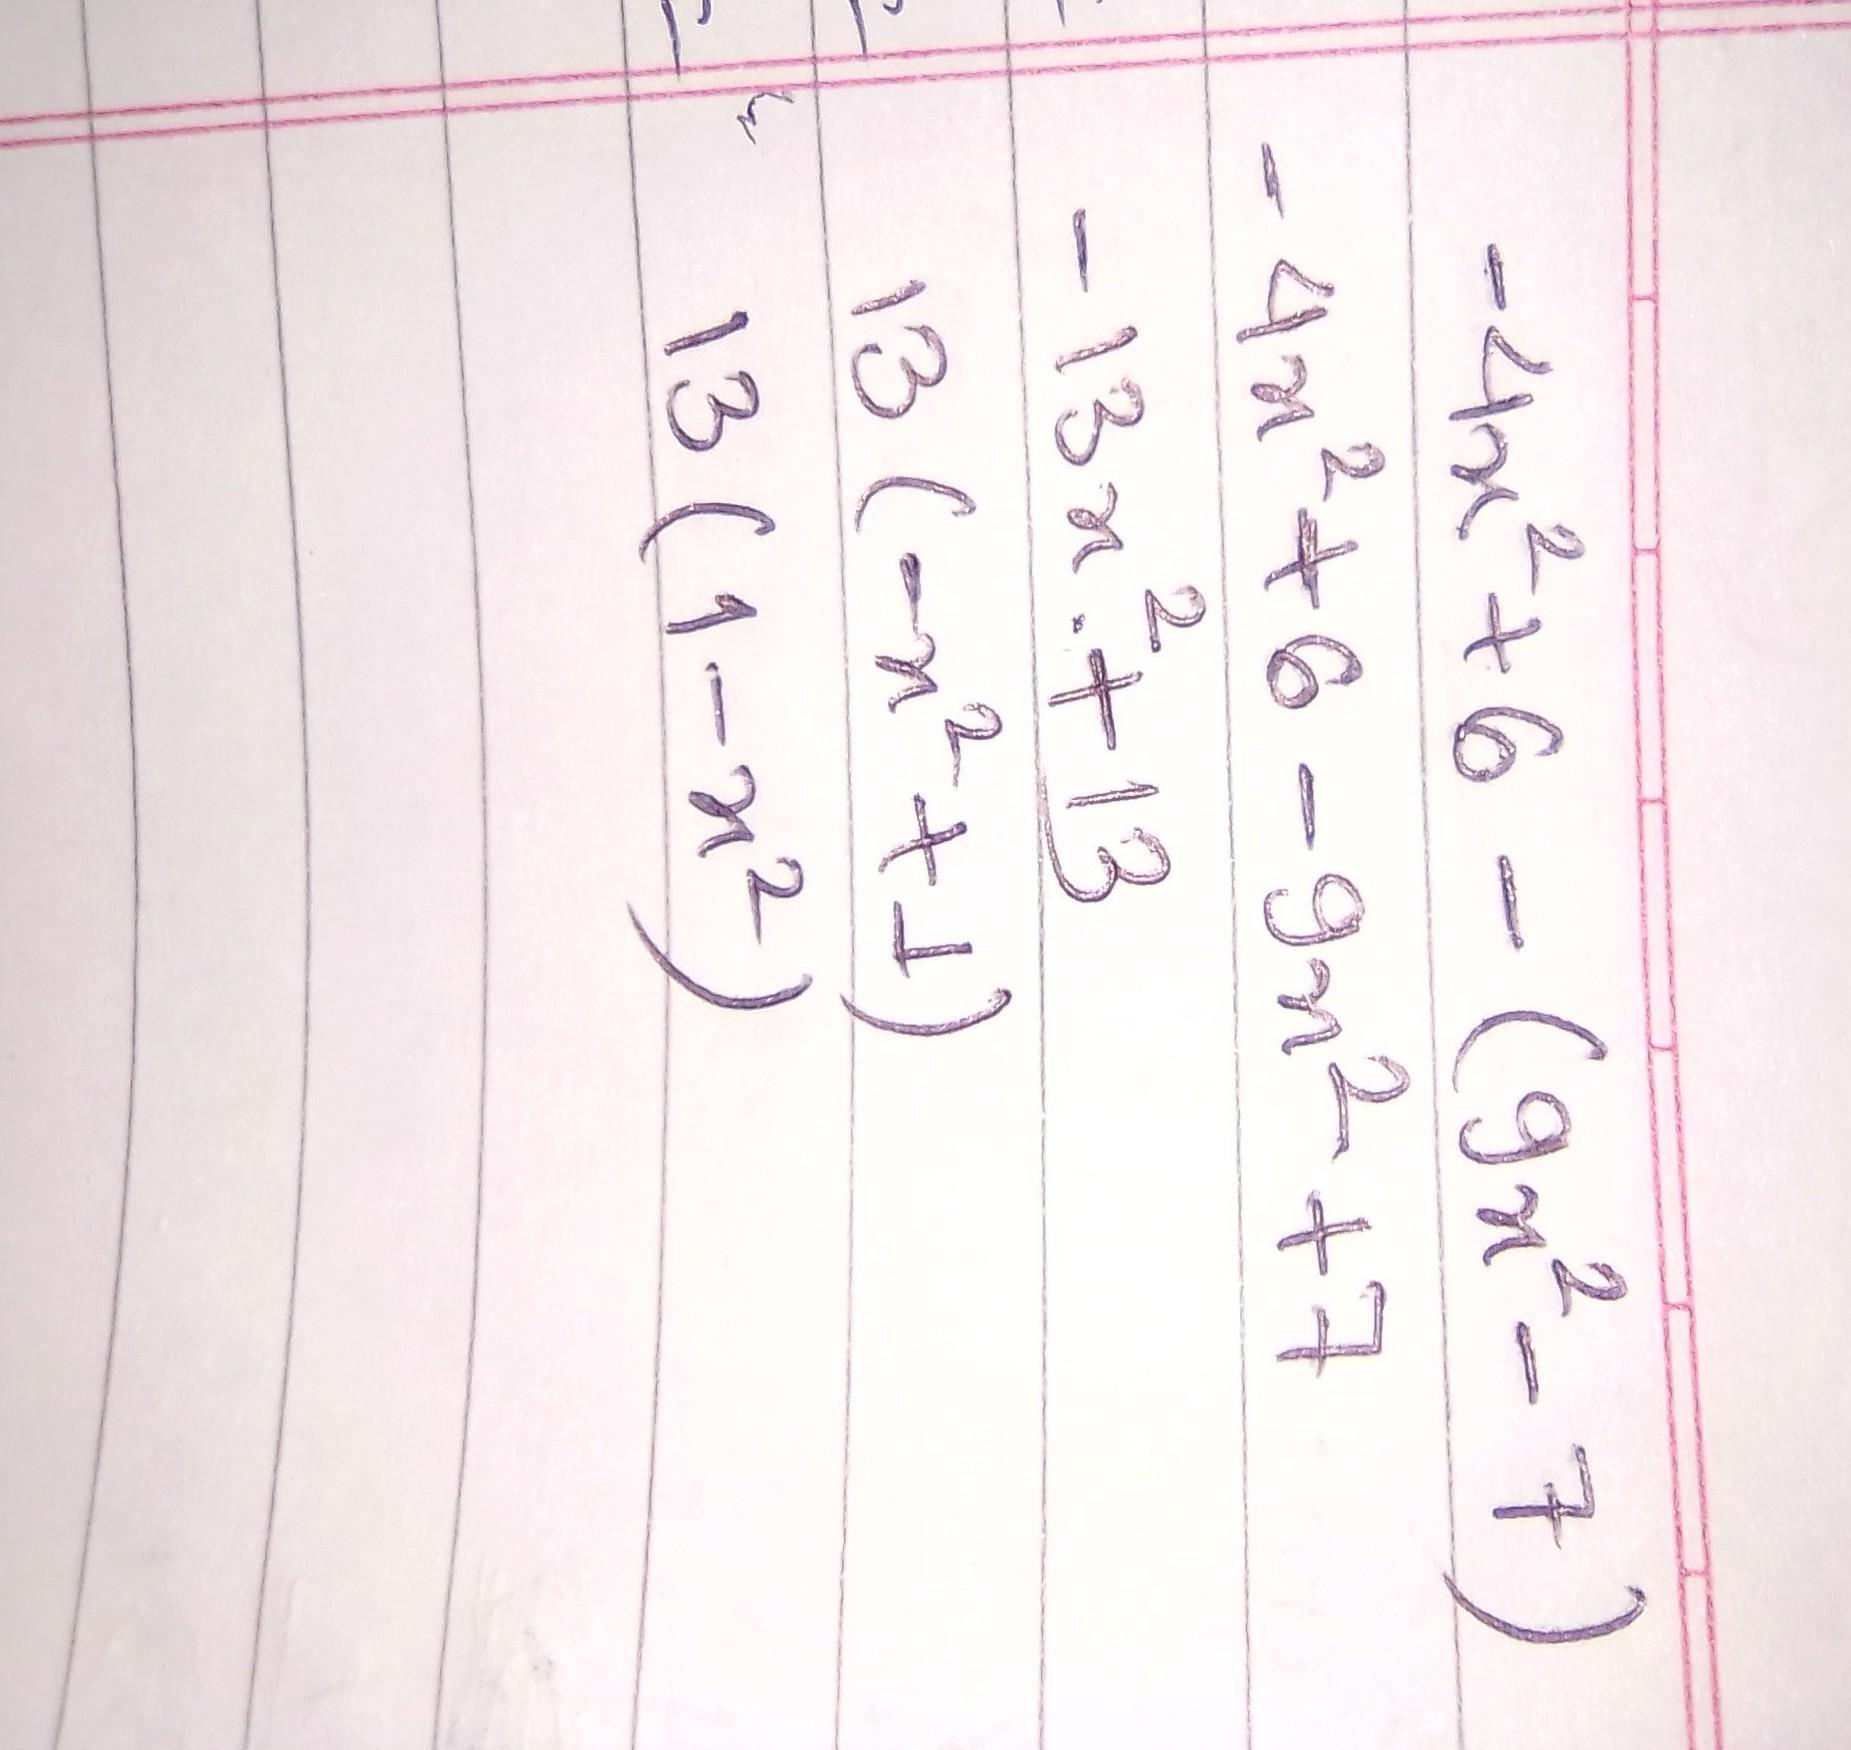 -4x²+6-(9x²-7)
-4x²+6-9x²+7
-13x²+13
13(-x²+1)
13(1-x²)